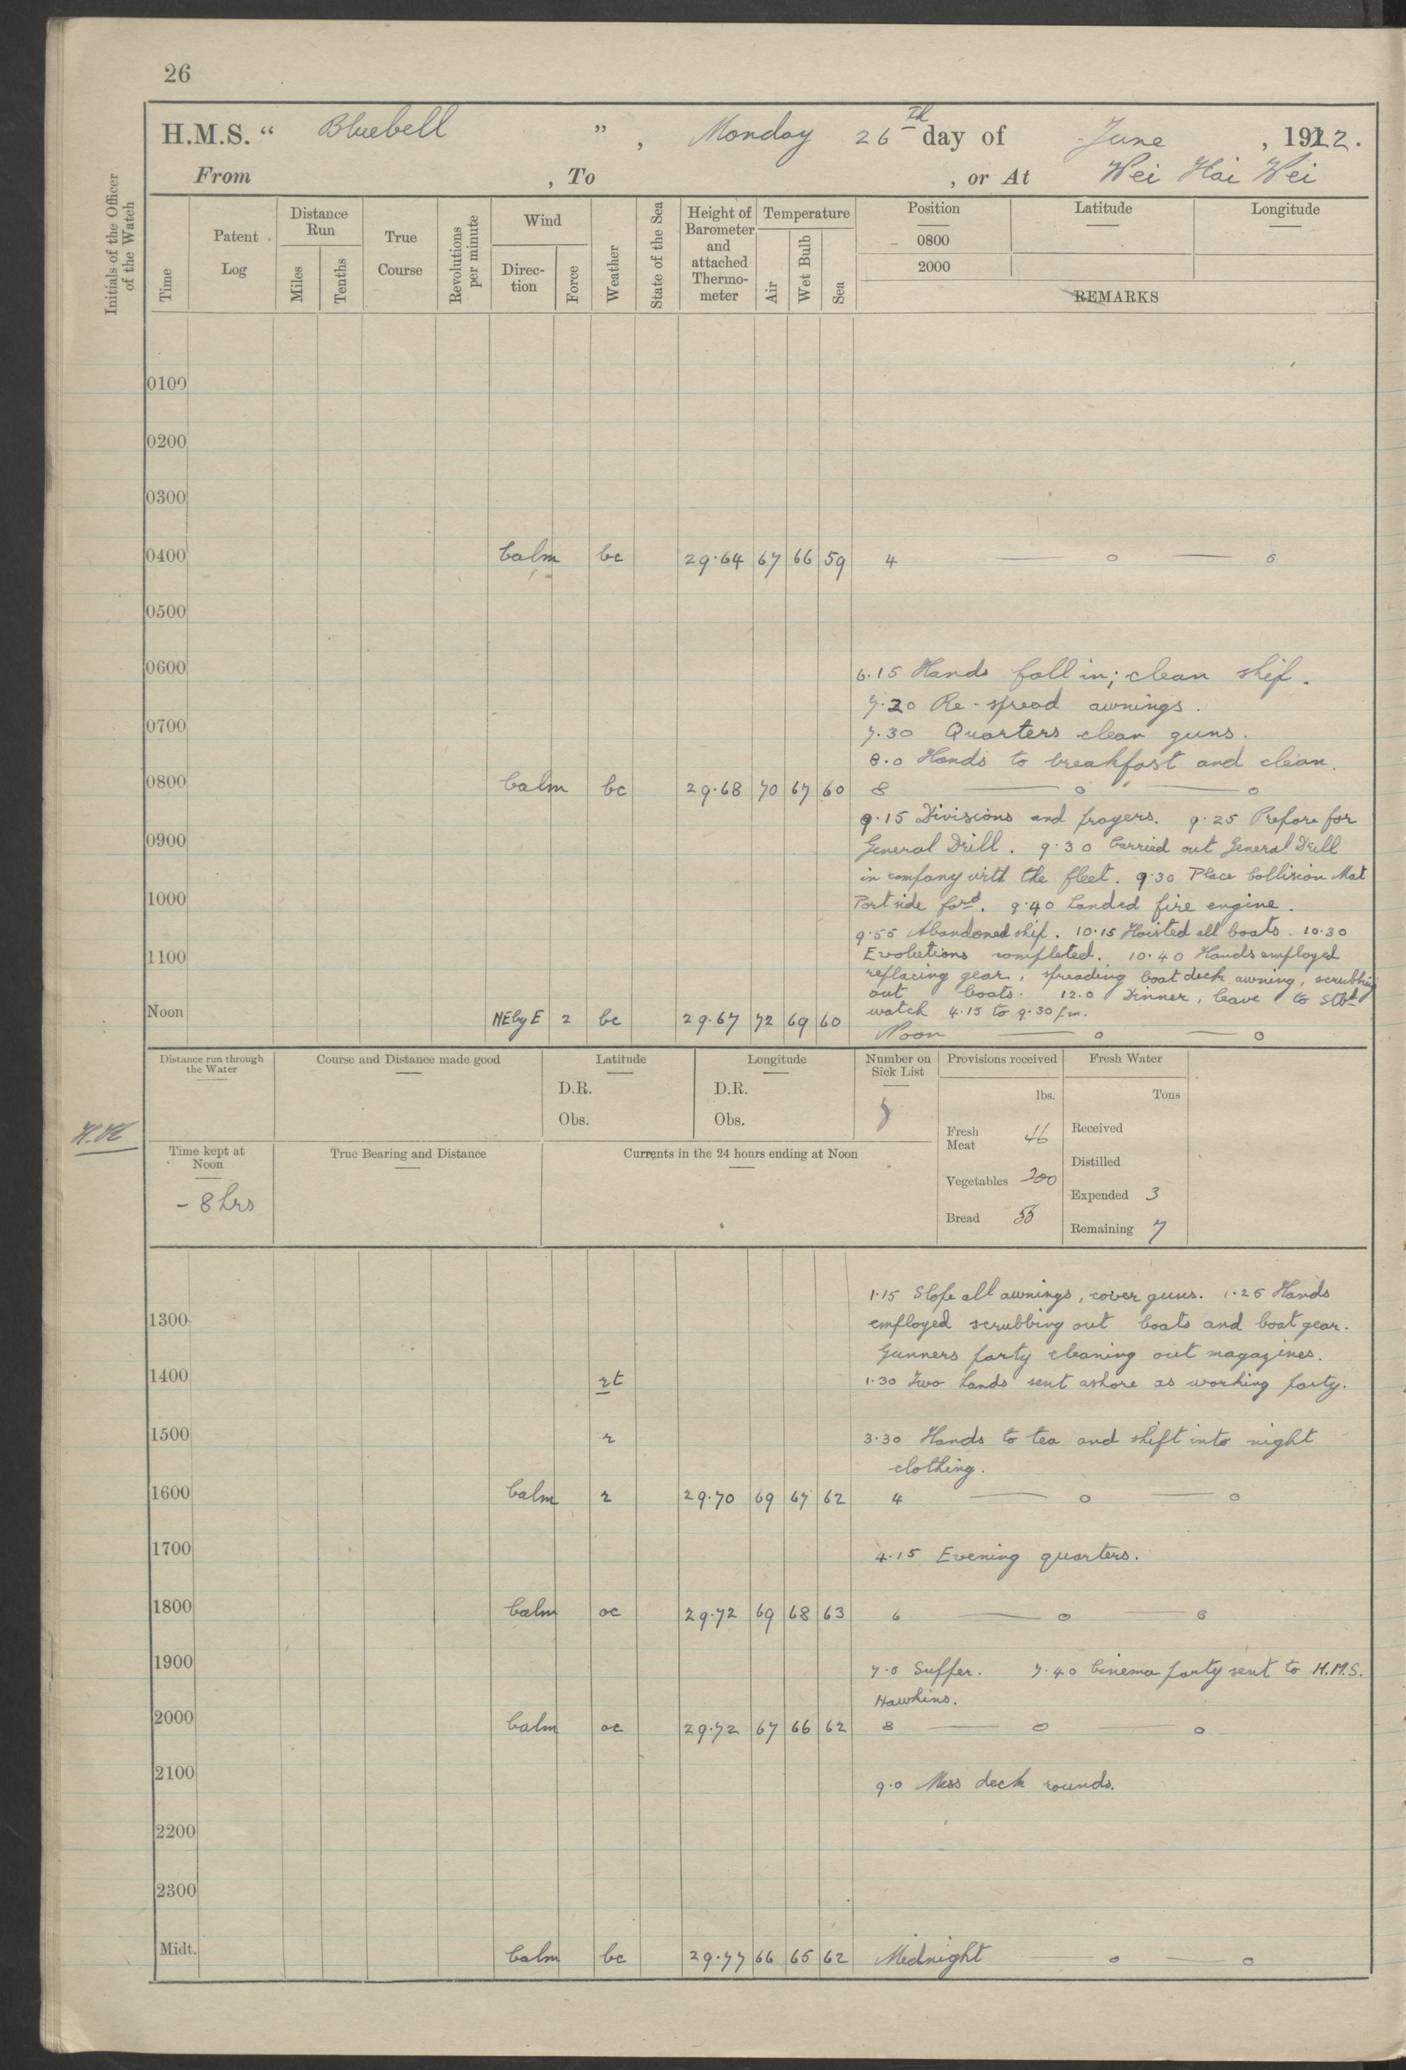 26
H.M.S. “ Bluebell ” , Monday 26th day of June , 1922.
From , To , or At Wei Hai Wei
Initials of the Officer of the Watch
Time
Patent Log
Distance Run
Miles
Tenths
True Course
Revolutions per minute
Wind
Direc-tion
Force
Weather
State of the Sea
Height of Barometer and attached Thermo-meter
Temperature
Air
Wet Bulb
Sea
Position Latitude Longitude
0800
2000
REMARKS
0100
0200
0300
0400 Calm bc 29.64 67 66 59 4 — o — o
0500
0600
6.15 Hands fall in; clean ship.
7.20 Re-spread awnings.
0700
7.30 Quarters clean guns.
8.0 Hands to breakfast and clean.
0800 Calm bc 29.68 70 67 60 8 — o — o
9.15 Divisions and prayers. 9.25 Prepare for
0900 General Drill. 9.30 Carried out General Drill
in company with the fleet. 9.30 Place Collision Mat
1000 Port side ford. 9.40 Landed fire engine.
9.55 Abandoned ship. 10.15 Hoisted all boats. 10.30
1100 Evolutions completed. 10.40 Hands employed
replacing gear, spreading boat deck awning, scrubbing
out boats. 12.0 Dinner, leave to Stbd
watch 4.15 to 9.30 pm.
Noon NEbyE 2 bc 29.67 72 69 60 Noon — o — o
Distance run through the Water
Course and Distance made good
Latitude
D.R.
Obs.
Longitude
D.R.
Obs.
Number on Sick List
Provisions received
lbs.
Fresh Meat 46
Vegetables 200
Bread 55
Fresh Water
Tons
Received
Distilled
Expended 3
Remaining 7
Time kept at Noon
- 8 hrs
True Bearing and Distance
Currents in the 24 hours ending at Noon
1.15 Slope all awnings, cover guns. 1.25 Hands
1300 employed scrubbing out boats and boat gear.
Gunners party cleaning out magazines.
1400 rt 1.30 Two hands sent ashore as working party.
1500 r 3.30 Hands to tea and shift into night
clothing.
1600 Calm r 29.70 69 67 62 4 — o — o
1700 4.15 Evening quarters.
1800 Calm oc 29.72 69 68 63 6 — o — o
1900 7.0 Supper. 7.40 Cinema party sent to H.M.S.
Hawkins.
2000 Calm oc 29.72 67 66 62 8 — o — o
2100 9.0 Mess deck rounds.
2200
2300
Midt. Calm bc 29.77 66 65 62 Midnight — o — o